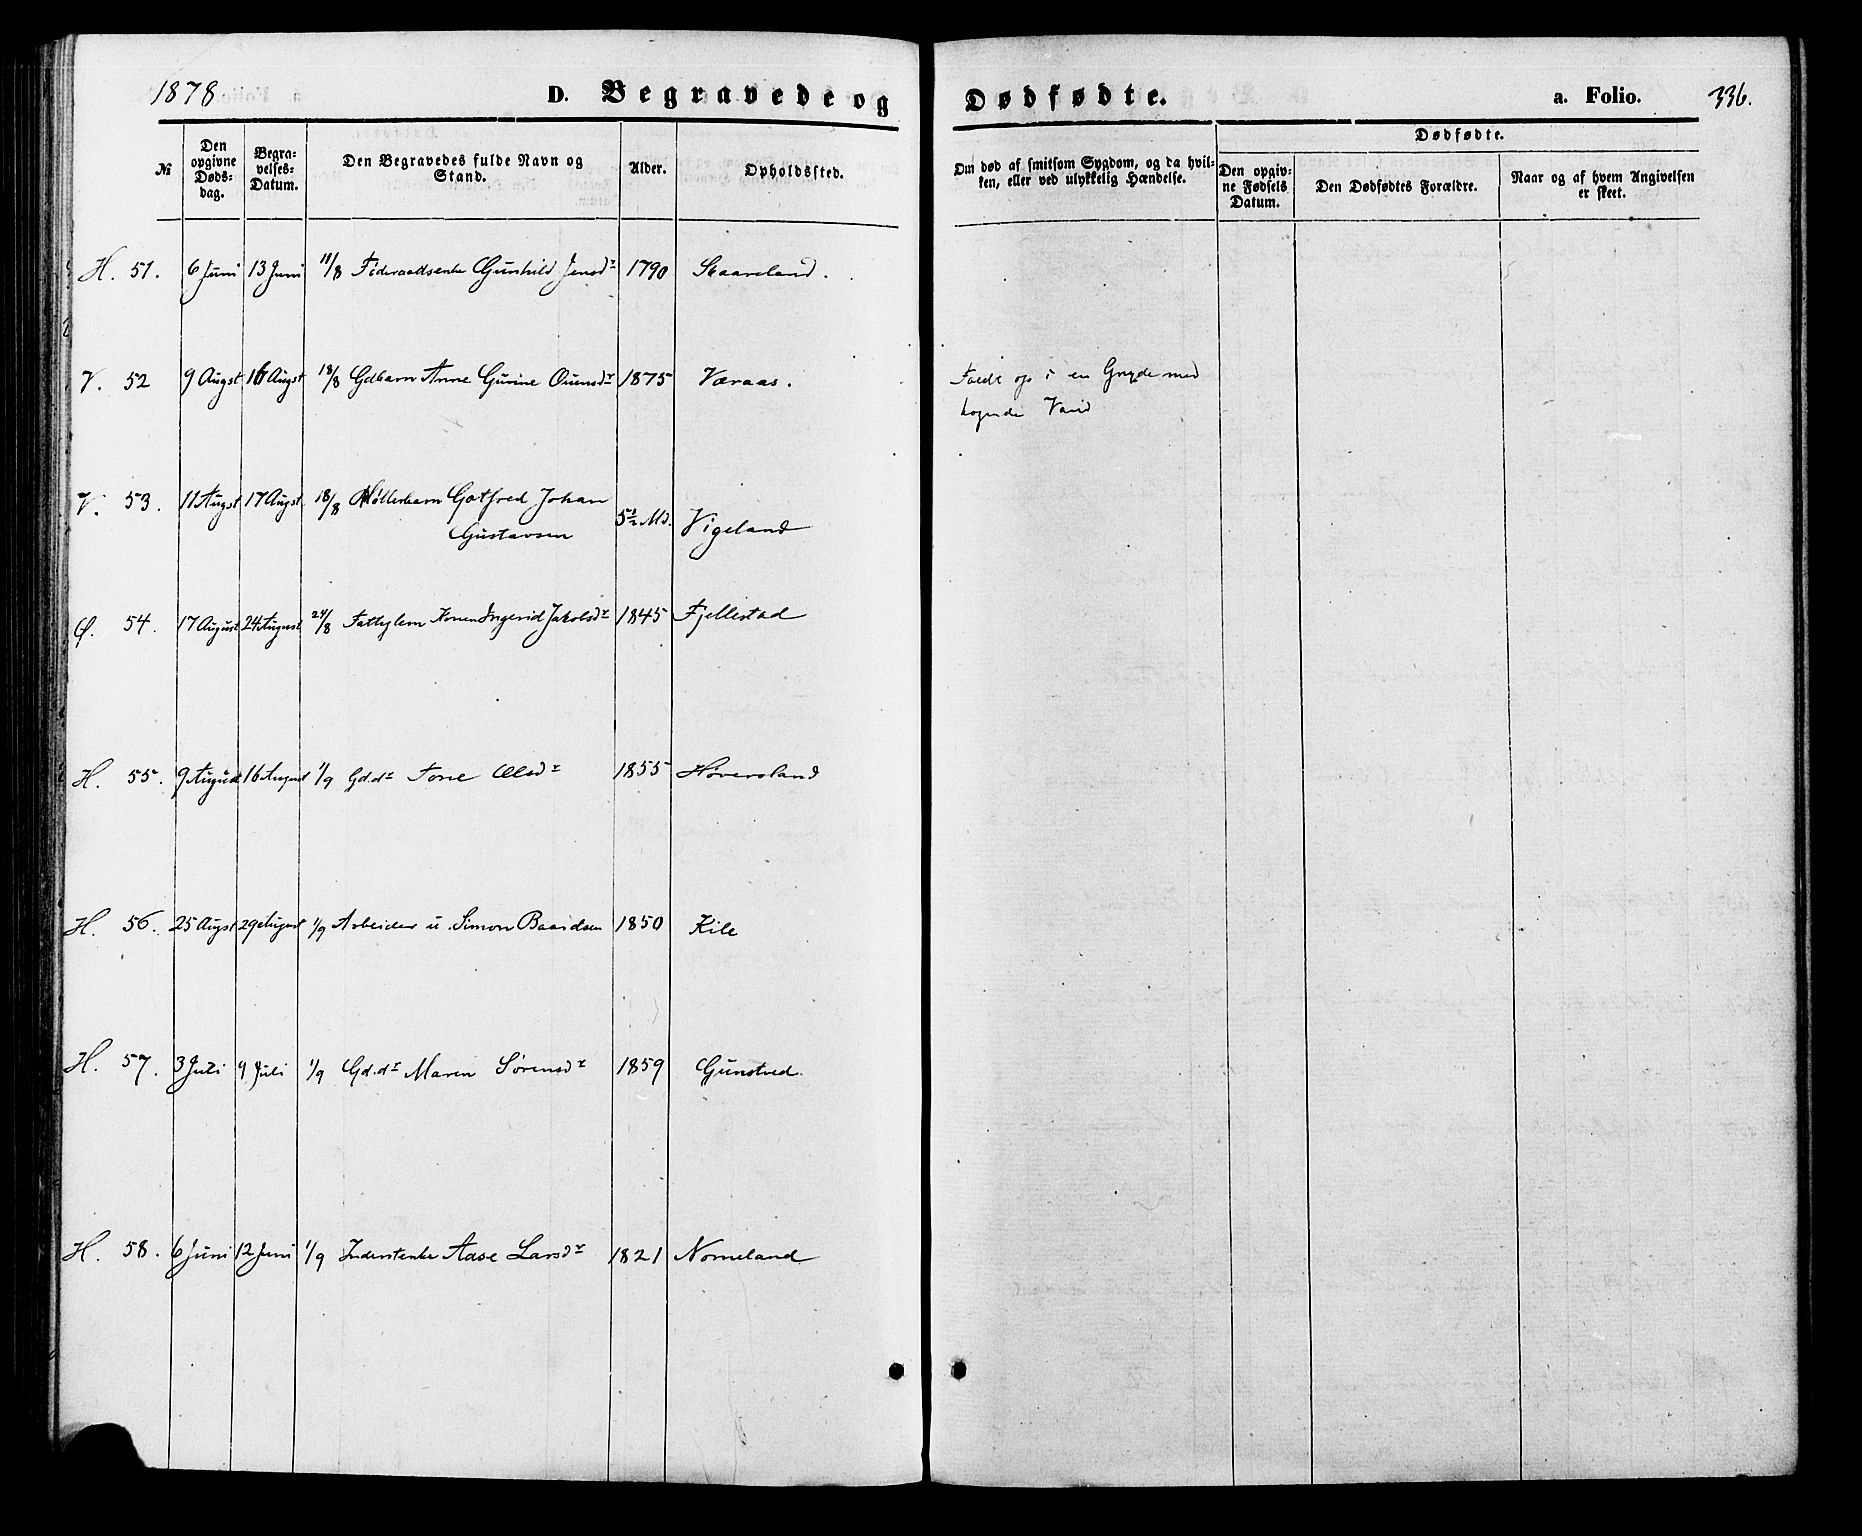 1878 D. Begravede og Dødfødte. a. Folio. 336.
№ Den opgivne Døds-dag. Begra-velses-Datum. Den Begravedes fulde Navn og Stand. Alder. Opholdssted. Om død af smitsom Sygdom, og da hvil-ken, eller ved ulykkelig Hændelse. Dødfødte. Den opgiv-ne Fødsels Datum. Den Dødfødtes Forældre. Naar og af hvem Angivelsen er skeet.
H. 51. 6 Juni 13 Juni 11/8 Føderaadsenke Gunhild Jensdr 1790 Skaareland.
V. 52 9 Augst 16 Augst 18/8 Gdbarn Anne Gurine Ouensdr 1875 Væraas. Faldt op i en Gryde med
kogende Vand
V. 53. 11 Augst 17 Augst 18/8 Møllerbarn Gotfred Johan
Gustavsen 5½ Md. Vigeland
Ø. 54. 17 August 24 August 24/8 Fattiglem Konen Ingerid Jakobsdr 1845 Fjellestad
H. 55. 9 August 16 August 1/9 Gd.dr Tone Olsdr 1855 Høversland
H. 56. 25 Augst 29 August 1/9 Arbeider u. Simon Baardsen 1850 Kile
H. 57. 3 Juli 9 Juli 1/9 Gd.dr Maren Sørensdr 1859 Gunstved.
H. 58. 6 Juni 12 Juni 1/9 Inderstenke Aase Larsdr 1821 Nomeland